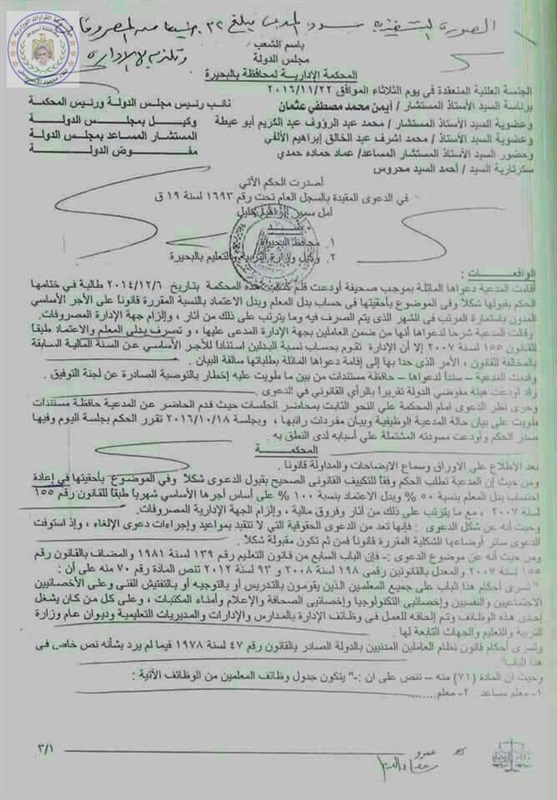 الصورة التنفيذية
بسم الشعب
مجلس الدولة
المحكمة الإدارية لمحافظة بالبحيرة
الجلسة العلنية المنعقدة في يوم الثلاثاء الموافق ٢٠١٦/١١/٢٢
برئاسة السيد الأستاذ المستشار / أيمن محمد مصطفي عثمان نائب رئيس مجلس الدولة ورئيس المحكمة
وعضوية السيد الأستاذ / محمد عبد الرؤوف عبد الكريم أبو عيطة وكيل بمجلس الدولة
وعضوية السيد الأستاذ / محمد اشرف عبد الخالق إبراهيم الألفي المستشار المساعد بمجلس الدولة
وحضور السيد الأستاذ المستشار المساعد/ عماد حماده حمدي مفوض الدولة
سكرتارية السيد / أحمد السيد محروس
أصدرت الحكم الآتي
في الدعوى المقيدة بالسجل العام تحت رقم ١٦٩٣ لسنة ١٩ ق
أمل سمير
١. محافظ البحيرة
٢. وكيل وزارة التربية والتعليم بالبحيرة
الواقعات :
أقامت المدعية دعواها الماثلة بموجب صحيفة أودعت قلم كتاب هذه المحكمة بتاريخ ٢٠١٤/١٢/٦ طالبة في ختامها
الحكم بقبولها شكلاً وفي الموضوع بأحقيتها في حساب بدل المعلم وبدل الاعتماد بالنسبة المقررة قانوناً على الأجر الأساسي
المدون باستمارة المرتب في الشهر الذي يتم الصرف فيه وما يترتب على ذلك من آثار ، وإلزام جهة الإدارة المصروفات.
وقالت المدعية شرحاً لدعواها أنها من ضمن العاملين بجهة الإدارة المدعى عليها ، و تصرف بدلي المعلم والاعتماد طبقاً
للقانون ١٥٥ لسنة ٢٠٠٧ إلا أن الإدارة تقوم بحساب نسبة البدلين استناداً للأجر الأساسي عن السنة المالية السابقة
بالمخالفة للقانون ، الأمر الذي حدا بها إلى إقامة دعواها الماثلة بطلباتها سالفة البيان .
وقدمت المدعية – سنداً لدعواها – حافظة مستندات من بين ما طويت عليه إخطار بالتوصية الصادرة عن لجنة التوفيق .
وقد أودعت هيئة مفوضي الدولة تقريراً بالرأي القانوني في الدعوى .
وجرى نظر الدعوى أمام المحكمة علي النحو الثابت بمحاضر الجلسات حيث قدم الحاضر عن المدعية حافظة مستندات
طويت على بيان حالة المدعية الوظيفية وبيان مفردات راتبها ، وبجلسة ٢٠١٦/١٠/١٨ تقرر الحكم بجلسة اليوم وفيها
صدر الحكم وأودعت مسودته المشتملة علي أسبابه لدى النطق به .
المحكمة
بعد الإطلاع علي الأوراق وسماع الإيضاحات والمداولة قانوناً .
ومن حيث أن المدعية تطلب الحكم وفقاً للتكييف القانوني الصحيح بقبول الدعوى شكلاً وفي الموضوع بأحقيتها في إعادة
احتساب بدل المعلم بنسبة ٥٠ % وبدل الاعتماد بنسبة ١٠٠ % على أساس أجرها الأساسي شهرياً طبقاً للقانون رقم ١٥٥
لسنة ٢٠٠٧ ، مع ما يترتب على ذلك من آثار وفروق مالية ، وإلزام الجهة الإدارية المصروفات.
وحيث أنه عن شكل الدعوى : فإنها تعد من الدعوى الحقوقية التي لا تتقيد بمواعيد وإجراءات دعوى الإلغاء ، وإذ استوفت
الدعوى سائر أوضاعها الشكلية المقررة قانوناً فمن ثم تكون مقبولة شكلاً .
ومن حيث أنه عن موضوع الدعوى :- فإن الباب السابع من قانون التعليم رقم ١٣٩ لسنة ١٩٨١ والمضاف بالقانون رقم
١٥٥ لسنة ٢٠٠٧ والمعدل بالقانونين رقمي ١٩٨ لسنة ٢٠٠٨ و ٩٣ لسنة ٢٠١٢ تنص المادة ٧٠ منه على أن :
" تسري أحكام هذا الباب على جميع المعلمين الذين يقومون بالتدريس أو بالتوجيه أو بالتفتيش الفني وعلى الأخصائيين
الاجتماعيين والنفسيين وإخصائيي التكنولوجيا وإخصائيي الصحافة والإعلام وأمناء المكتبات ، وعلى كل من كان يشغل
إحدى هذه الوظائف وتم إلحاقه للعمل في وظائف الإدارة بالمدارس والإدارات والمديريات التعليمية وديوان عام وزارة
التربية والتعليم والجهات التابعة لها .
وتسرى أحكام قانون نظام العاملين المدنيين بالدولة الصادر بالقانون رقم ٤٧ لسنة ١٩٧٨ فيما لم يرد بشأنه نص خاص في
هذا الباب"
وحيث أن المادة (٧١) منه – تنص على أن :-" يتكون جدول وظائف المعلمين من الوظائف الآتية :
١- معلم مساعد ٢- معلم........
٣/١
عمرو